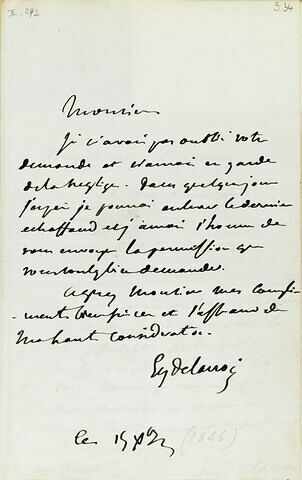 II, 293
336
Monsieur
Je n'avais pas oublié votre
demande et n'aurais eu garde
de la négliger. Dans quelques jours
j'espère je pourrai enlever le dernier
echaffaud et j'aurai l'honneur de
vous envoyer la permission que
vous voulez bien demander.
Agréez Monsieur mes compli-
-ments empressés et l'assurance de
ma haute considération.
Eug Delacroix
Ce 15 Xbre (1846)